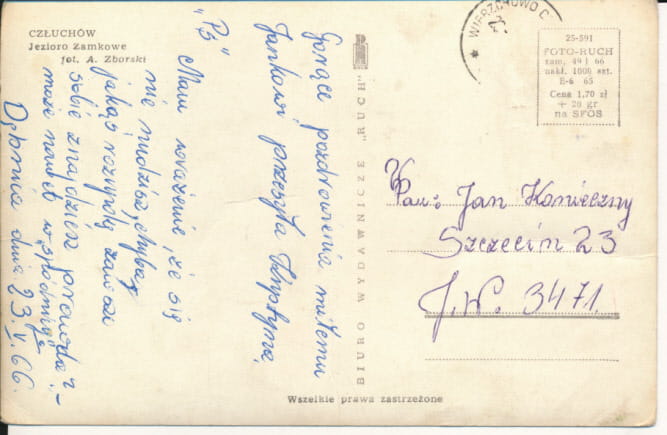 CZŁUCHÓW
Jezioro Zamkowe
fot. A. Zborski
Gorące pozdrowienia miłemu
Jankowi przesyła Krystyna
"Ps"
Mam wrażenie, że się
nie nudzisz, chyba
jakąś rozrywkę zawsze
sobie znajdziesz prawda? -
może nawet w "spódnicy"
Dębnia dnia 23.V.66.
BIURO WYDAWNICZE „RUCH"
WIERZCHOWO C
25-591
FOTO-RUCH
zam. 49 I 66
nakł. 1000 szt.
E-6 65
Cena 1,70 zł
+ 20 gr
na SFOS
Pan: Jan Konieczny
Szczecin 23
J.W. 3471.
Wszelkie prawa zastrzeżone